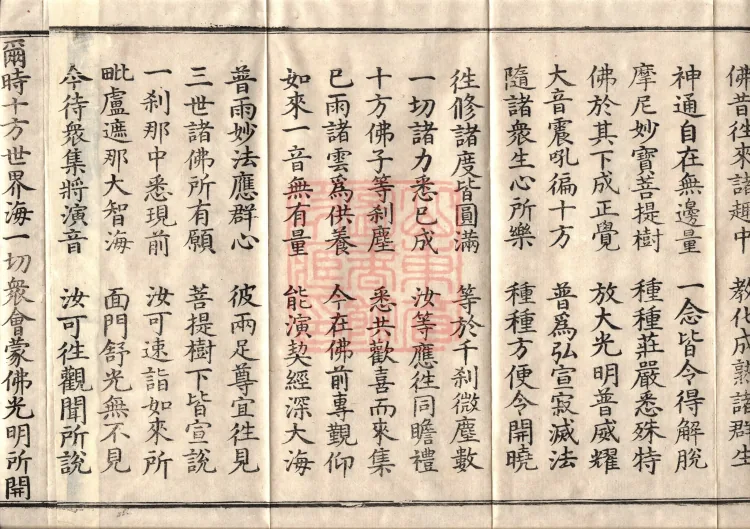 佛昔往來諸趣中 教化成熟諸群生
神通自在無邊量 一念皆令得解脫
摩尼妙寶菩提樹 種種莊嚴悉殊特
佛於其下成正覺 放大光明普威耀
大音震吼徧十方 普為弘宣寂滅法
隨諸衆生心所樂 種種方便令開曉
往修諸度皆圓滿 等於千刹微塵數
一切諸力悉已成 汝等應往同瞻禮
十方佛子等刹塵 悉共歡喜而來集
已雨諸雲為供養 今在佛前專覲仰
如來一音無有量 能演契經深大海
普雨妙法應群心 彼兩足尊宜往見
三世諸佛所有願 菩提樹下皆宣說
一刹那中悉現前 汝可速詣如來所
毗盧遮那大智海 面門舒光無不見
今待衆集將演音 汝可往觀聞所說
爾時十方世界海一切衆會蒙佛光明所開